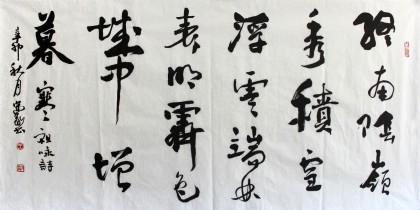 終南陰嶺
秀積雪
浮雲端林
表明霽色
城中增
暮寒 祖咏詩
辛卯秋月